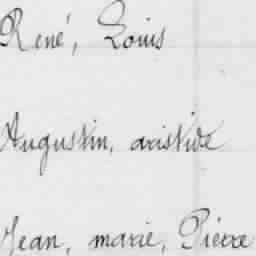 René, Louis
Augustin, aristide
Jean, marie, Pierre